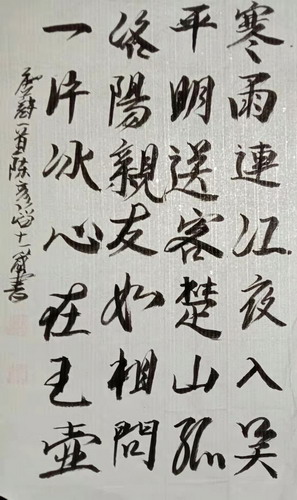 寒雨連江夜入吴
平明送客楚山孤
洛陽親友如相問
一片冰心在玉壺
陈彦十一歲書